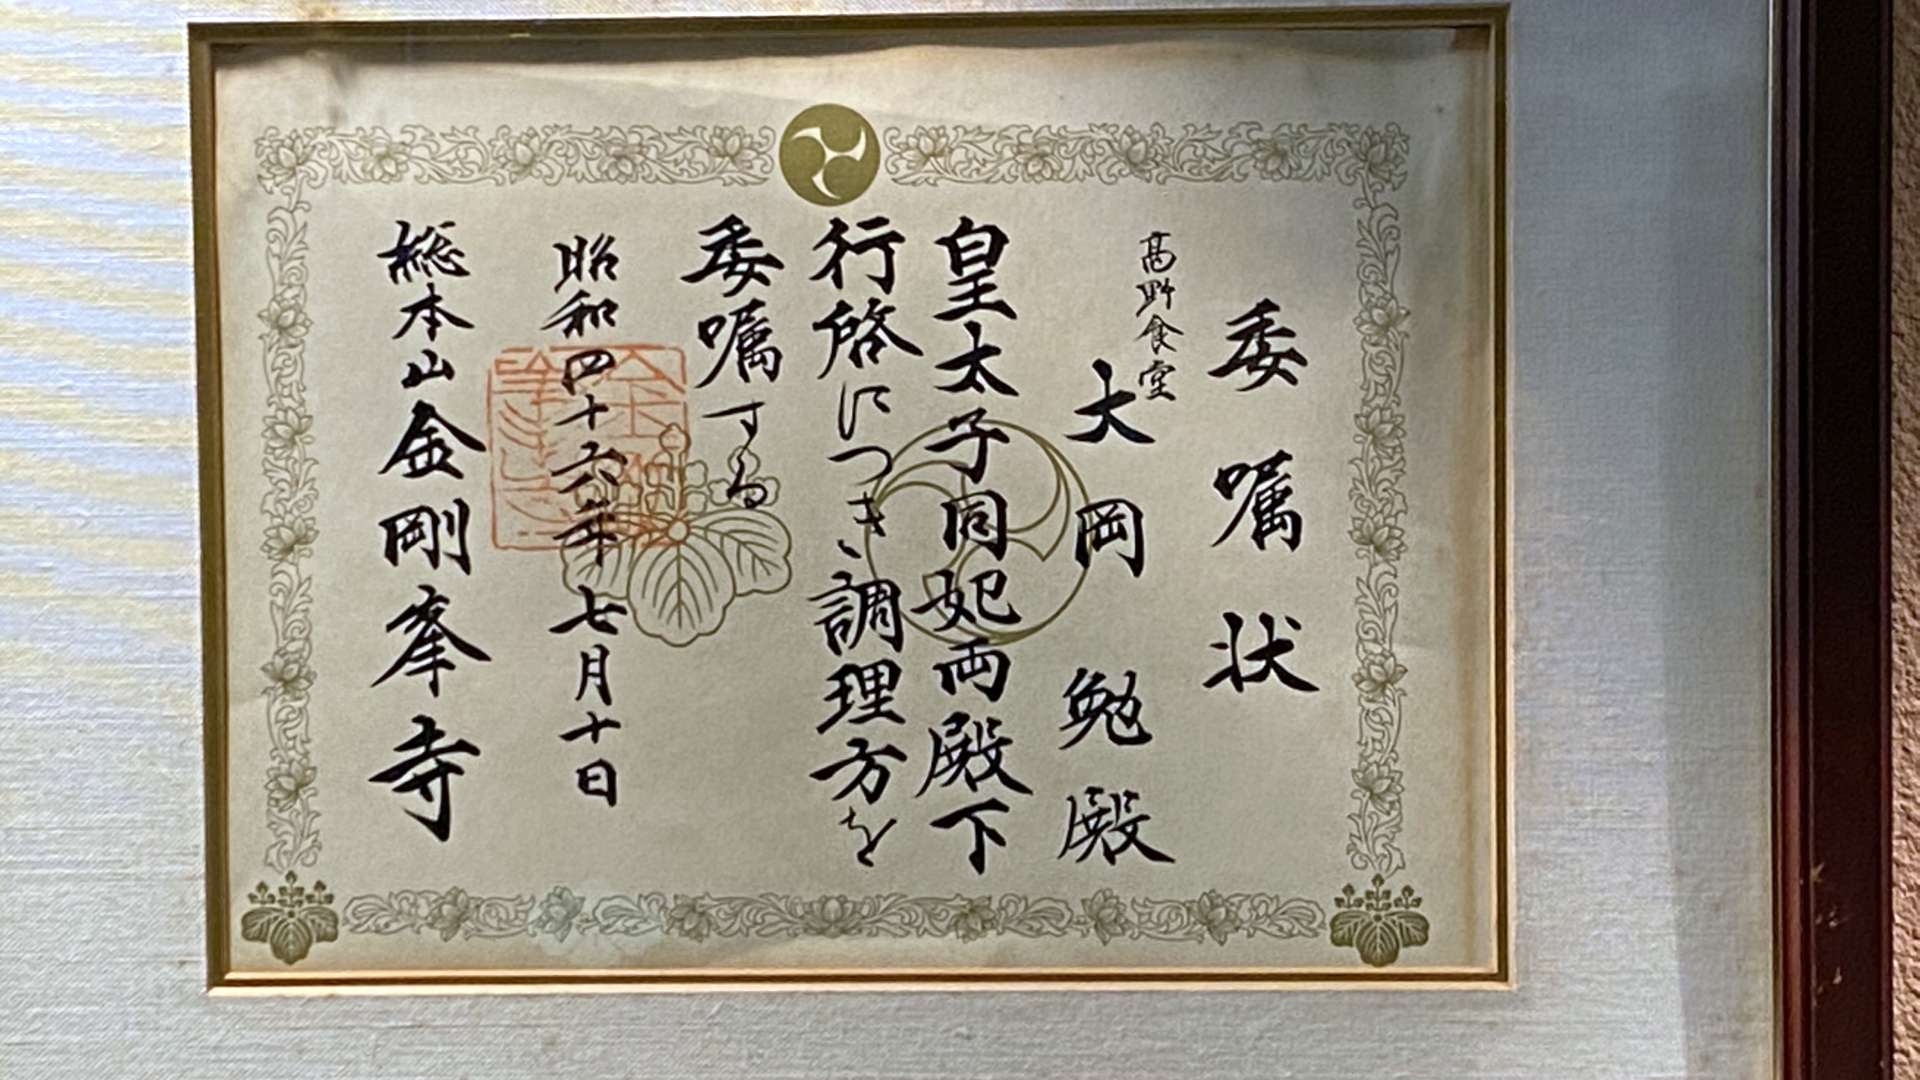 委嘱状
高野食堂
大岡勉殿
皇太子同妃両殿下
行啓につき調理方を
委嘱する
昭和四十六年七月十日
総本山金剛峯寺